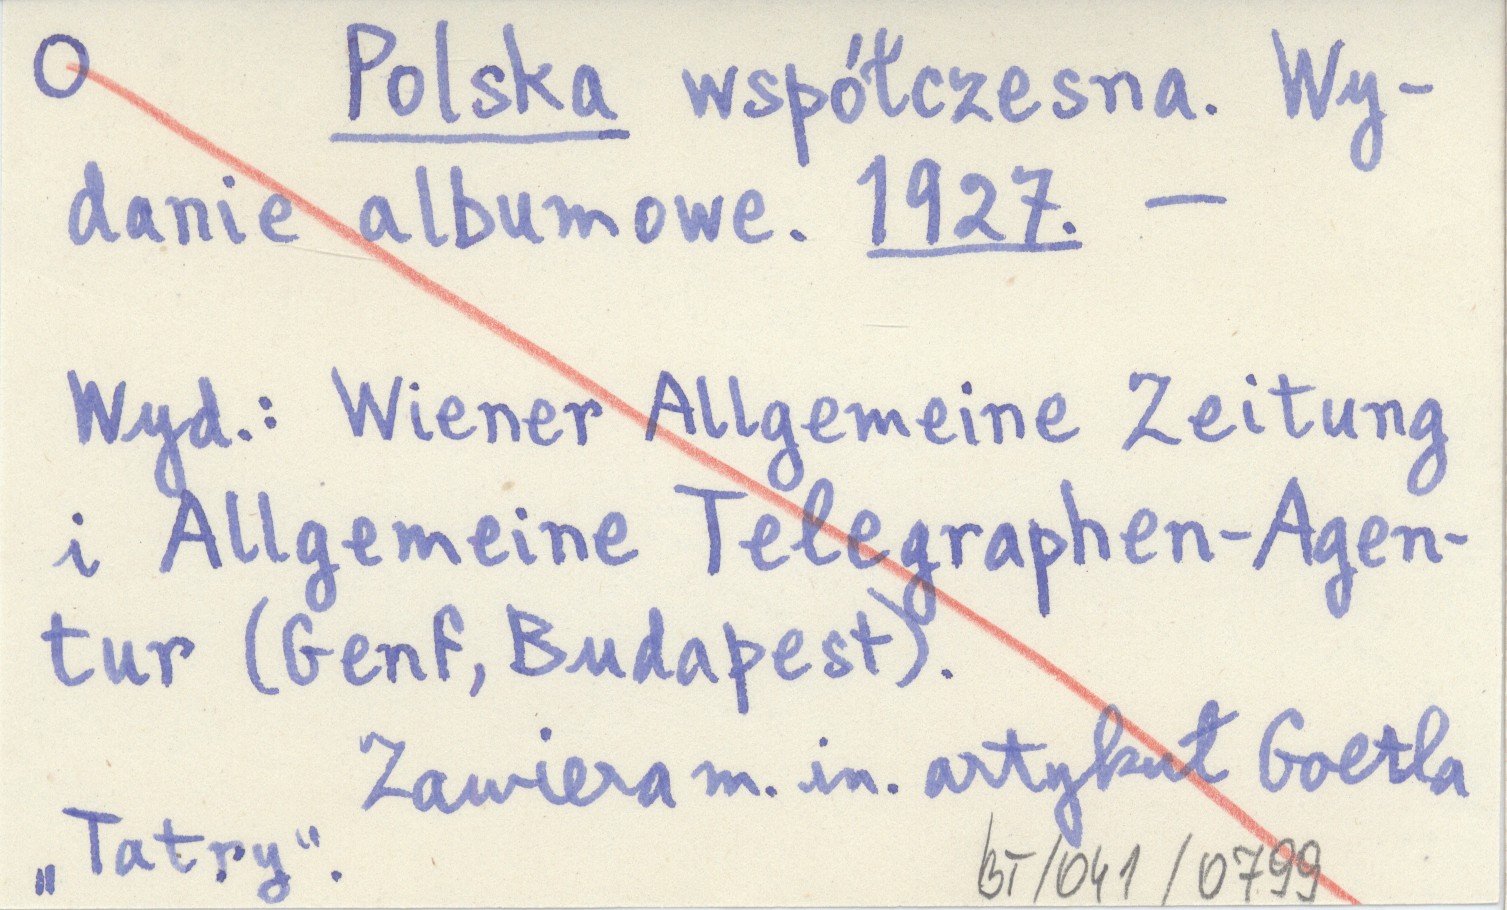 O Polska współczesna. Wy-
danie albumowe. 1927. —
Wyd.: Wiener Allgemeine Zeitung
i Allgemeine Telegraphen-Agen-
tur (Genf, Budapest).
Zawiera m. in. artykuł Goetla
„Tatry".
BT/041/0799